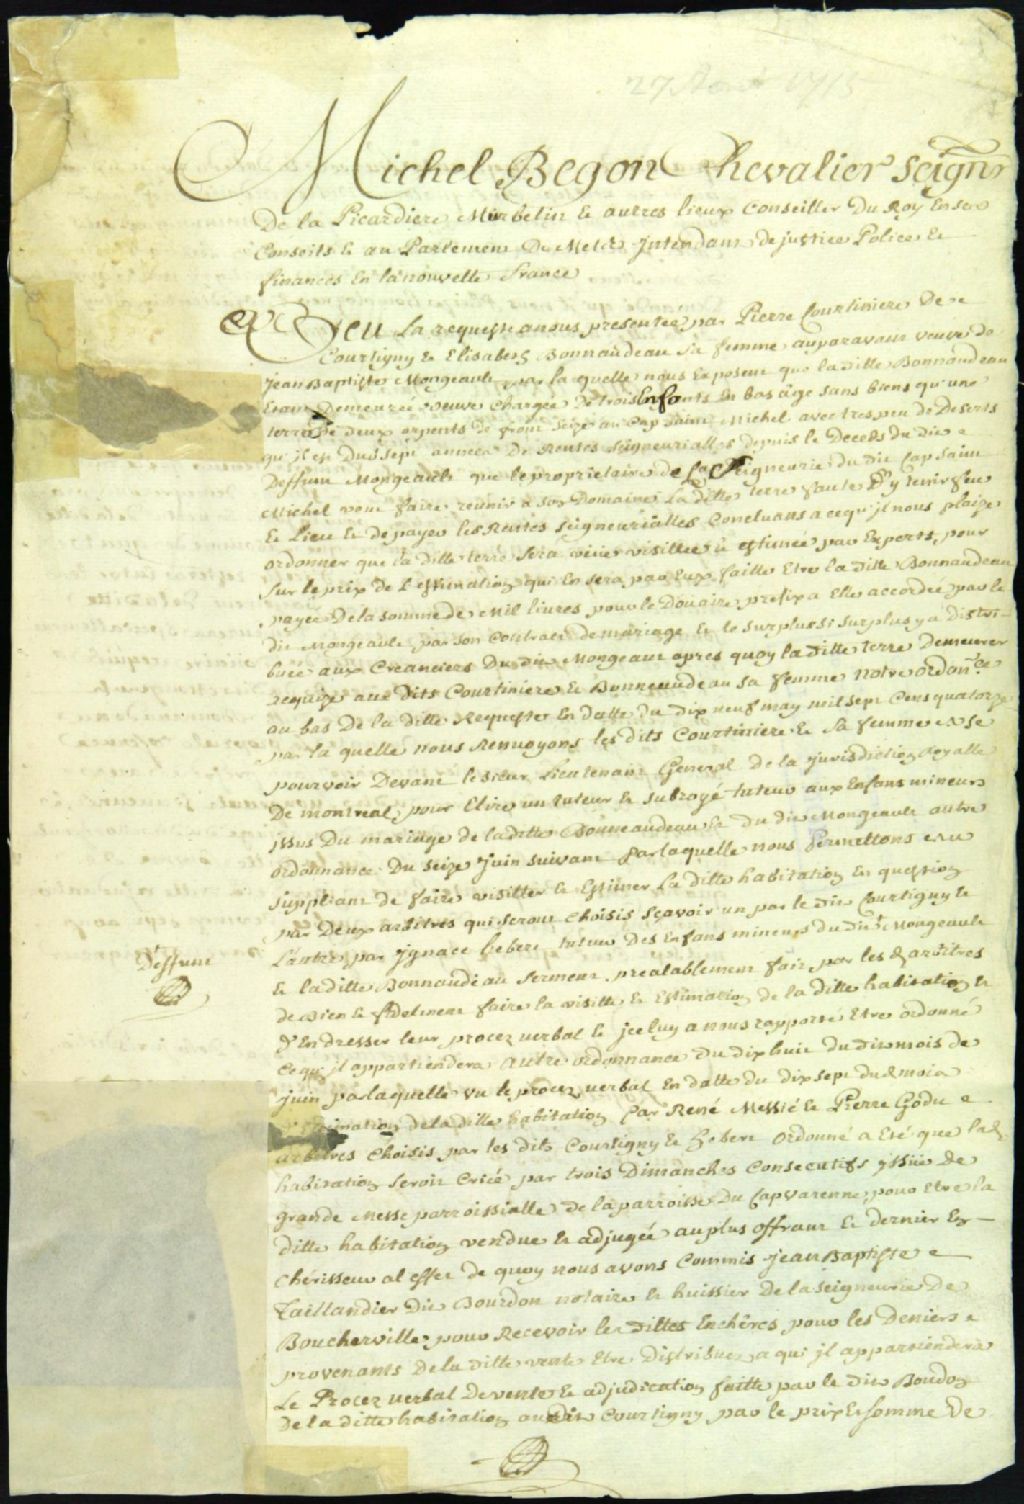 27 Aout 1715
Michel Begon Chevalier Seign.r
De la Picardiere Murbelin & autres lieux Conseiller Du Roy En ses
Conseils & au Parlement De Metz Intendant de justice Police &
finances En la nouvelle france
Veu La requeste a nous presentée par Pierre Courtiniere De
Courtigny & Elisabeth Bonnaudeau Sa femme auparavant veuve de
Jean Baptiste Mongeault par laquelle nous Exposent que la ditte Bonnaudeau
Etant Demeurée Veuve Chargée De trois Enfants En bas âge sans biens qu'une
terre De deux arpents de front size au Cap Saint Michel avec tres peu de Deserts
qu'il est Du sept années De Rentes Seigneurialles depuis le Deceds du dit
Deffunt Mongeault que le proprietaire de La Seigneurie du dit Cap Saint
Michel veut faire reunir a son Domaine La ditte terre faute D'y tenir feu
& Lieu & de payer les Rentes seigneurialles Concluans a ce qu'il nous plaise
ordonner que la ditte terre Sera veüe visittée & estimée par Experts pour
Sur le prix de L'estimation qui En sera par Eux faitte Etre la ditte Bonnaudeau
payée De la somme de Mil livres pour le Douaire prefix a Elle accordée par le
dit Mongeault par son Contrat de mariage & le surplus si surplus y a Distri-
buée aux Creanciers Du dit Mongeau apres quoy la ditte terre Demeurer
aux Dits Courtiniere & Bonneaudeau sa femme Notre ordon.ce
au bas De la ditte Requeste En datte du dix neuf may mil sept Cens quatorze
par la quelle nous Renvoyons les dits Courtiniere & Sa femme a se
pourvoir Devant le sieur Lieutenant General de la jurisdiction Royalle
De montreal pour Elire un tuteur & subrogé tuteur aux Enfans mineurs
issus Du mariage de la ditte Bonneaudeau & du dit Mongeault autre
ordonnance Du seize Juin suivant par laquelle nous Permettons au
suppliant de faire visitter & Estimer La ditte habitation En question
par Deux arbitres qui seront Choisis sçavoir un par le dit Courtigny &
L'autre par Ignace hebert tuteur Des Enfans mineurs du dit Mongeault
Deffunt
& la ditte Bonnaudeau serment prealablement fait par les d. arbitres
de Bien & fidelment faire la visitte & Estimation de la ditte habitation &
D'En dresser leur procez verbal & iceluy a nous rapporté Etre ordonné
Ce qu'il appartiendera autre ordonnance du dix huit du dit mois de
juin par laquelle vu le procez verbal En datte du dix sept du d. mois
Estimation de la ditte habitation par René Messié & Pierre Godu
arbitres Choisis par les dits Courtigny & hebert ordonné a Eté que la d.
habitation seroit Criée par trois Dimanches Consecutifs issüe de
grande Messe parroissialle de la parroisse Du Cap Varenne pour Etre la
ditte habitation vendue & adjugée au plus offrant & dernier En-
Chérisseur al effet de quoy nous avons Commis Jean Baptiste
Taillandier Dit Bourdon notaire & huissier de la Seigneurie De
Boucherville pour Recevoir les dittes Enchêres pour les Deniers
provenants De la ditte vente Etre Distribuez a qui il appartiendera
Le Procez verbal De vente & adjudication faitte par le dit Boudon
de la ditte habitation au Dit Courtigny par le prix & somme De